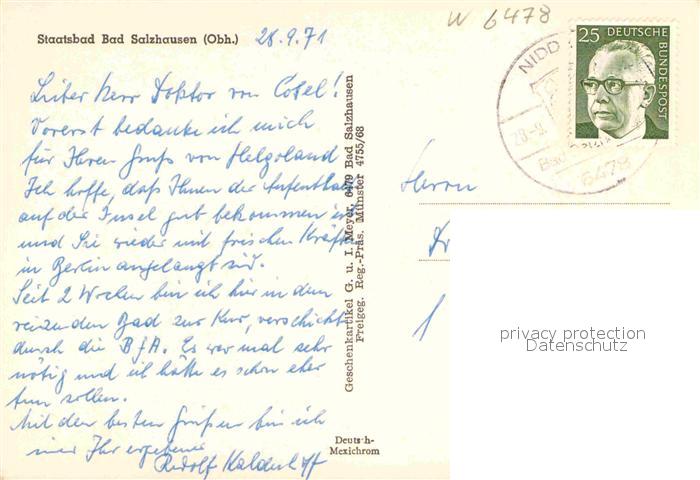 W 6478
Staatsbad Bad Salzhausen (Obh.) 28.9.71
25 DEUTSCHE BUNDESPOST
NIDD
28.-9.
Bad Salzh
6478
Lieber Herr Doktor von Cosel!
Vorerst bedanke ich mich
für Ihren Gruß von Helgoland
Ich hoffe, daß Ihnen der Aufenthalt
auf der Insel gut bekommen ist
und Sie wieder mit frischen Kräften
in Berlin angelangt sind.
Seit 2 Wochen bin ich hier in dem
reizenden Bad zur Kur, verschickt
durch die BfA. Es war mal sehr
nötig und ich hätte es schon eher
tun sollen.
Mit den besten Grüßen bin ich
Ihr ergebener
Rudolf
Geschenkartikel G. u. I. Meyer, 6479 Bad Salzhausen
Freigeg. Reg.-Präs. Münster 4755/68
Deutsch-
Mexichrom
Herrn
Dr
1
privacy protection
Datenschutz